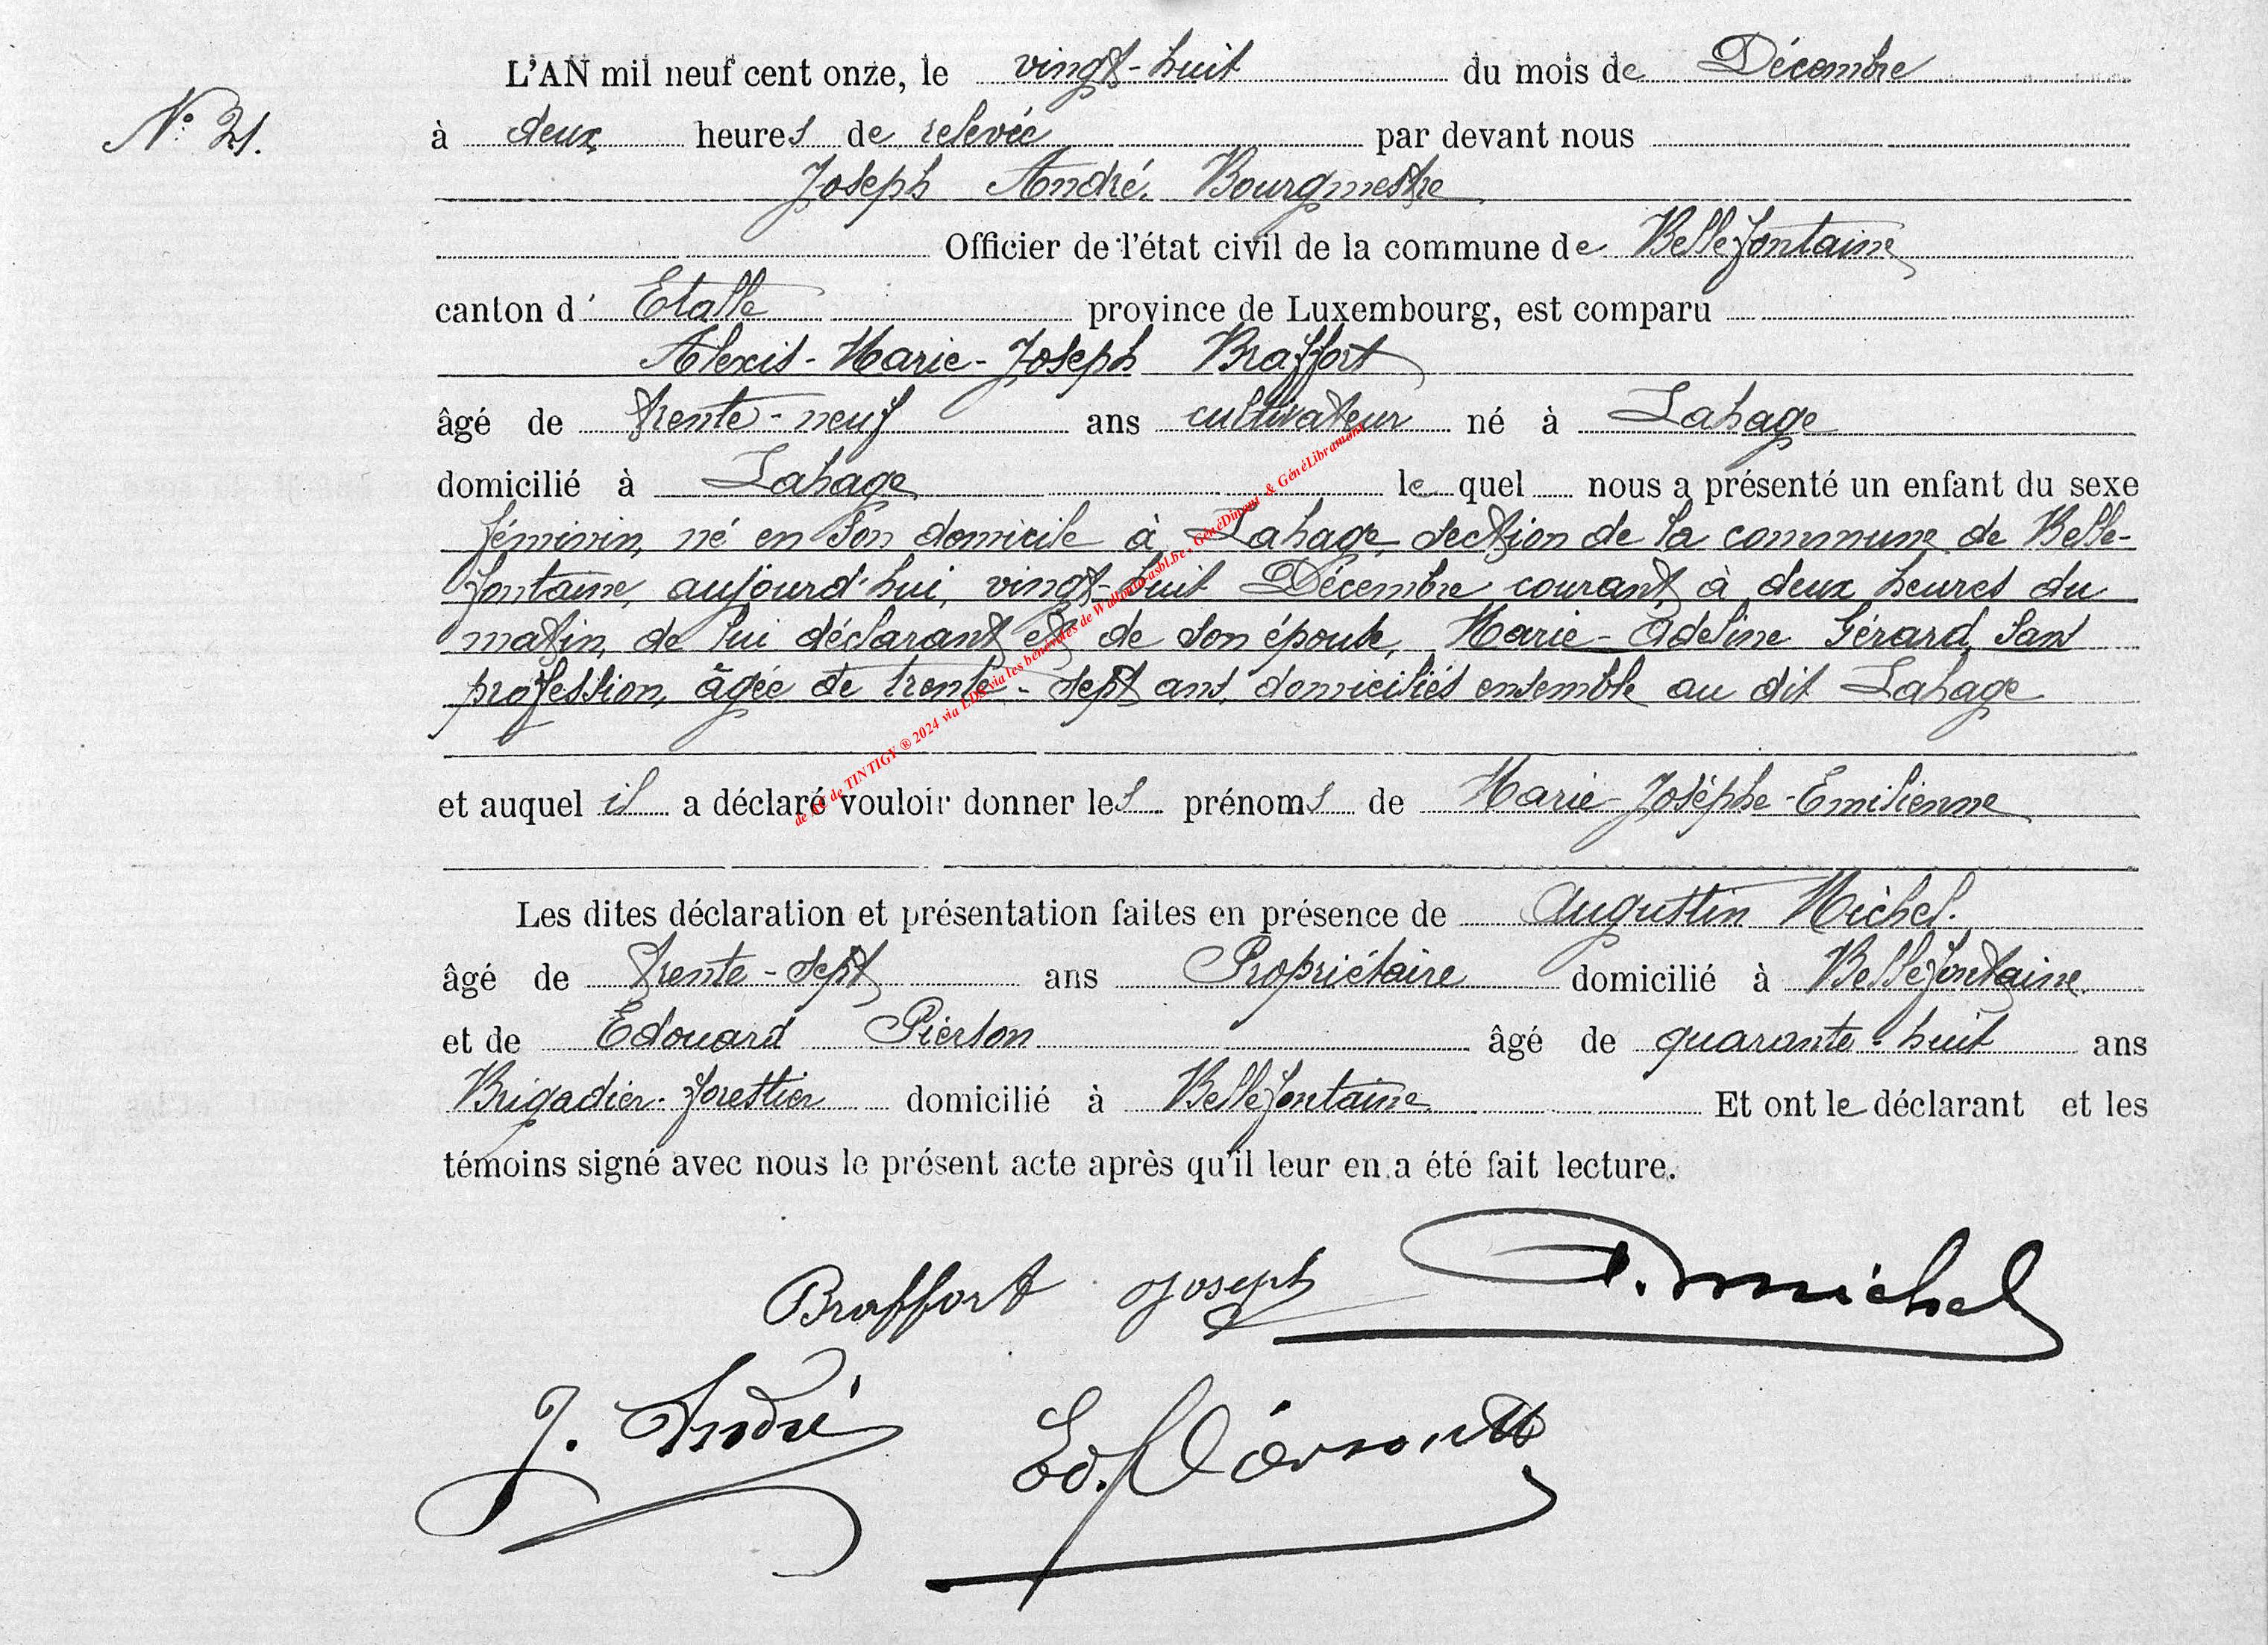 L'AN mil neuf cent onze, le vingt-huit du mois de Décembre
N° 21.
à deux heures de relevée par devant nous
Joseph André, Bourgmestre
Officier de l'état civil de la commune de Bellefontaine
canton d' Etalle province de Luxembourg, est comparu
Alexis-Marie-Joseph Braffort
âgé de trente-neuf ans cultivateur né à Lahage
domicilié à Lahage le quel nous a présenté un enfant du sexe
féminin, né en son domicile à Lahage, section de la commune de Belle-
fontaine, aujourd'hui, vingt-huit Décembre courant, à deux heures du
matin, de lui déclarant et de son épouse, Marie-Adeline Gérard, sans
profession, âgée de trente-sept ans, domiciliés ensemble au dit Lahage
et auquel il a déclaré vouloir donner les prénoms de Marie-Josèphe-Emilienne
Les dites déclaration et présentation faites en présence de Augustin Michel.
âgé de trente-sept ans Propriétaire domicilié à Bellefontaine.
et de Edouard Pierson âgé de quarante-huit ans
Brigadier-forestier domicilié à Bellefontaine Et ont le déclarant et les
témoins signé avec nous le présent acte après qu'il leur en a été fait lecture.
Braffort Joseph A. Michel
J. André Ed. Pierson
de TINTIGY ® 2024 via LDS via les bénévoles de Wallonia-asbl.be, GénéDinant & GénéLibramont